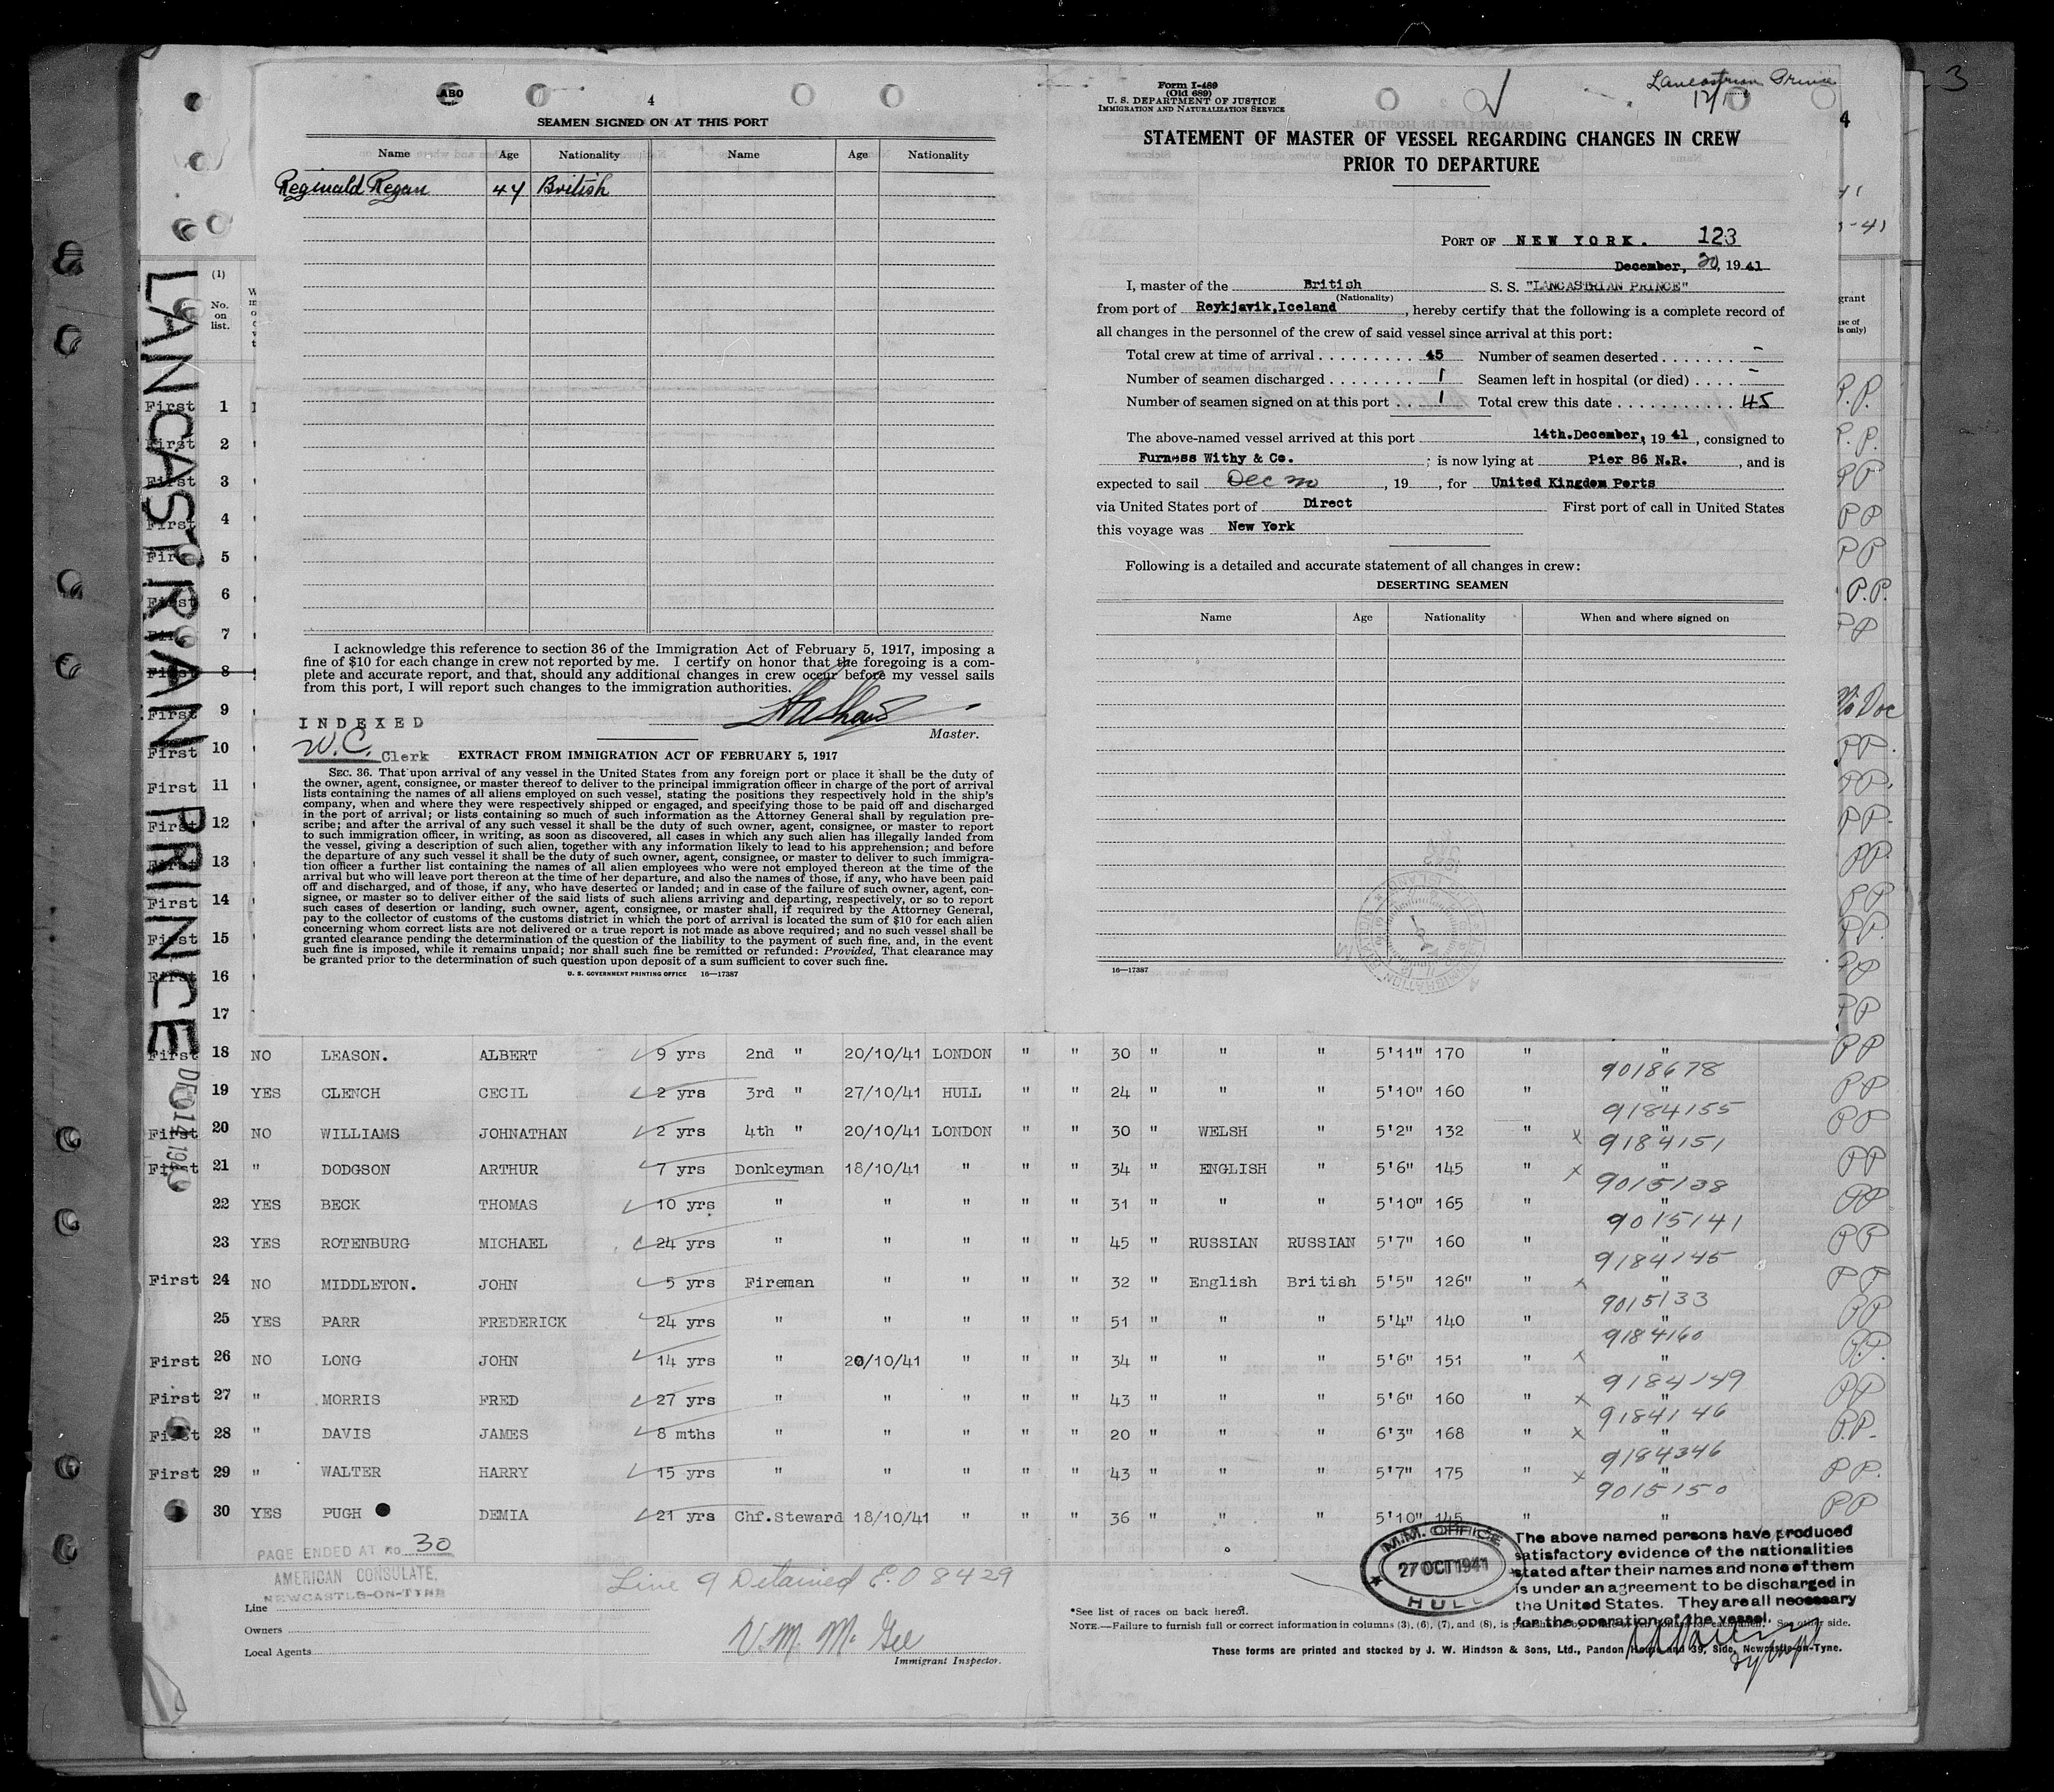 ABO
4
SEAMEN SIGNED ON AT THIS PORT
Name Age Nationality Name Age Nationality
Reginald Regan 44 British
I acknowledge this reference to section 36 of the Immigration Act of February 5, 1917, imposing a
fine of $10 for each change in crew not reported by me. I certify on honor that the foregoing is a com-
plete and accurate report, and that, should any additional changes in crew occur before my vessel sails
from this port, I will report such changes to the immigration authorities.
Master.
INDEXED
W.C. Clerk
EXTRACT FROM IMMIGRATION ACT OF FEBRUARY 5, 1917
SEC. 36. That upon arrival of any vessel in the United States from any foreign port or place it shall be the duty of
the owner, agent, consignee, or master thereof to deliver to the principal immigration officer in charge of the port of arrival
lists containing the names of all aliens employed on such vessel, stating the positions they respectively hold in the ship's
company, when and where they were respectively shipped or engaged, and specifying those to be paid off and discharged
in the port of arrival; or lists containing so much of such information as the Attorney General shall by regulation pre-
scribe; and after the arrival of any such vessel it shall be the duty of such owner, agent, consignee, or master to report
to such immigration officer, in writing, as soon as discovered, all cases in which any such alien has illegally landed from
the vessel, giving a description of such alien, together with any information likely to lead to his apprehension; and before
the departure of any such vessel it shall be the duty of such owner, agent, consignee, or master to deliver to such immigra-
tion officer a further list containing the names of all alien employees who were not employed thereon at the time of the
arrival but who will leave port thereon at the time of her departure, and also the names of those, if any, who have been paid
off and discharged, and of those, if any, who have deserted or landed; and in case of the failure of such owner, agent, con-
signee, or master so to deliver either of the said lists of such aliens arriving and departing, respectively, or so to report
such cases of desertion or landing, such owner, agent, consignee, or master shall, if required by the Attorney General,
pay to the collector of customs of the customs district in which the port of arrival is located the sum of $10 for each alien
concerning whom correct lists are not delivered or a true report is not made as above required; and no such vessel shall be
granted clearance pending the determination of the question of the liability to the payment of such fine, and, in the event
such fine is imposed, while it remains unpaid; nor shall such fine be remitted or refunded: Provided, That clearance may
be granted prior to the determination of such question upon deposit of a sum sufficient to cover such fine.
U. S. GOVERNMENT PRINTING OFFICE 16—17387
Form I-489
(Old 689)
U. S. DEPARTMENT OF JUSTICE
IMMIGRATION AND NATURALIZATION SERVICE
Lancastrian Prince
3
STATEMENT OF MASTER OF VESSEL REGARDING CHANGES IN CREW
PRIOR TO DEPARTURE
PORT OF NEW YORK. 123
December, 30, 1941
I, master of the British S. S. "LANCASTRIAN PRINCE"
(Nationality)
from port of Reykjavik, Iceland, hereby certify that the following is a complete record of
all changes in the personnel of the crew of said vessel since arrival at this port:
Total crew at time of arrival 45 Number of seamen deserted -
Number of seamen discharged 1 Seamen left in hospital (or died) -
Number of seamen signed on at this port 1 Total crew this date 45
The above-named vessel arrived at this port 14th. December, 1941, consigned to
Furness Withy & Co. ; is now lying at Pier 86 N.R., and is
expected to sail Dec , 19 , for United Kingdom Ports
via United States port of Direct First port of call in United States
this voyage was New York
Following is a detailed and accurate statement of all changes in crew:
DESERTING SEAMEN
Name Age Nationality When and where signed on
16—17387
LANCASTRIAN PRINCE
(1)
No.
on
list.
First 1 P.P.
First 2 P.P.
First 3 PP
First 4 PP
First 5 PP
First 6 P.P.
First 7 PP
First 8
First 9 No Doc
First 10 PP.
First 11 PP.
First 12 PP.
First 13 PP
First 14 PP
First 15 PP.
First 16 PP
17 PP
First 18 NO LEASON. ALBERT 9 yrs 2nd " 20/10/41 LONDON " " 30 " " " 5'11" 170 " " PP
9018678
19 YES CLENCH CECIL 2 yrs 3rd " 27/10/41 HULL " " 24 " " " 5'10" 160 " " PP
9184155
First 20 NO WILLIAMS JOHNATHAN 2 yrs 4th " 20/10/41 LONDON " " 30 " WELSH " 5'2" 132 " x PP
9184151
First 21 " DODGSON ARTHUR 7 yrs Donkeyman 18/10/41 " " " 34 " ENGLISH " 5'6" 145 " x " PP
9015138
22 YES BECK THOMAS 10 yrs " " " " " 31 " " " 5'10" 165 " " PP
9015141
23 YES ROTENBURG MICHAEL 24 yrs " " " " " 45 " RUSSIAN RUSSIAN 5'7" 160 " " PP
9184145
First 24 NO MIDDLETON. JOHN 5 yrs Fireman " " " " 32 " English British 5'5" 126" " x " PP
9015133
25 YES PARR FREDERICK 24 yrs " " " " " 51 " " " 5'4" 140 " " PP
9184160
First 26 NO LONG JOHN 14 yrs " 20/10/41 " " " 34 " " " 5'6" 151 " x " P.P.
9184149
First 27 " MORRIS FRED 27 yrs " " " " " 43 " " " 5'6" 160 " x " PP
9184146
First 28 " DAVIS JAMES 8 mths " " " " " 20 " " " 6'3" 168 " x " P.P.
9184346
First 29 " WALTER HARRY 15 yrs " " " " " 43 " " " 5'7" 175 " x " PP.
9015150
30 YES PUGH DEMIA 21 yrs Chf.Steward 18/10/41 " " " 36 " " " 5'10" 145 " " PP
PAGE ENDED AT NO 30
AMERICAN CONSULATE,
NEWCASTLE-ON-TYNE
Line 9 Detained E.O 8429
Line
Owners
Local Agents
V. M. McGee
Immigrant Inspector.
M.M. OFFICE
27 OCT 1941
HULL
The above named persons have produced
satisfactory evidence of the nationalities
stated after their names and none of them
is under an agreement to be discharged in
the United States. They are all necessary
for the operation of the vessel.
*See list of races on back hereof.
NOTE.—Failure to furnish full or correct information in columns (3), (6), (7), and (8), is See other side.
These forms are printed and stocked by J. W. Hindson & Sons, Ltd., Pandon House and 39, Side, Newcastle-on-Tyne.